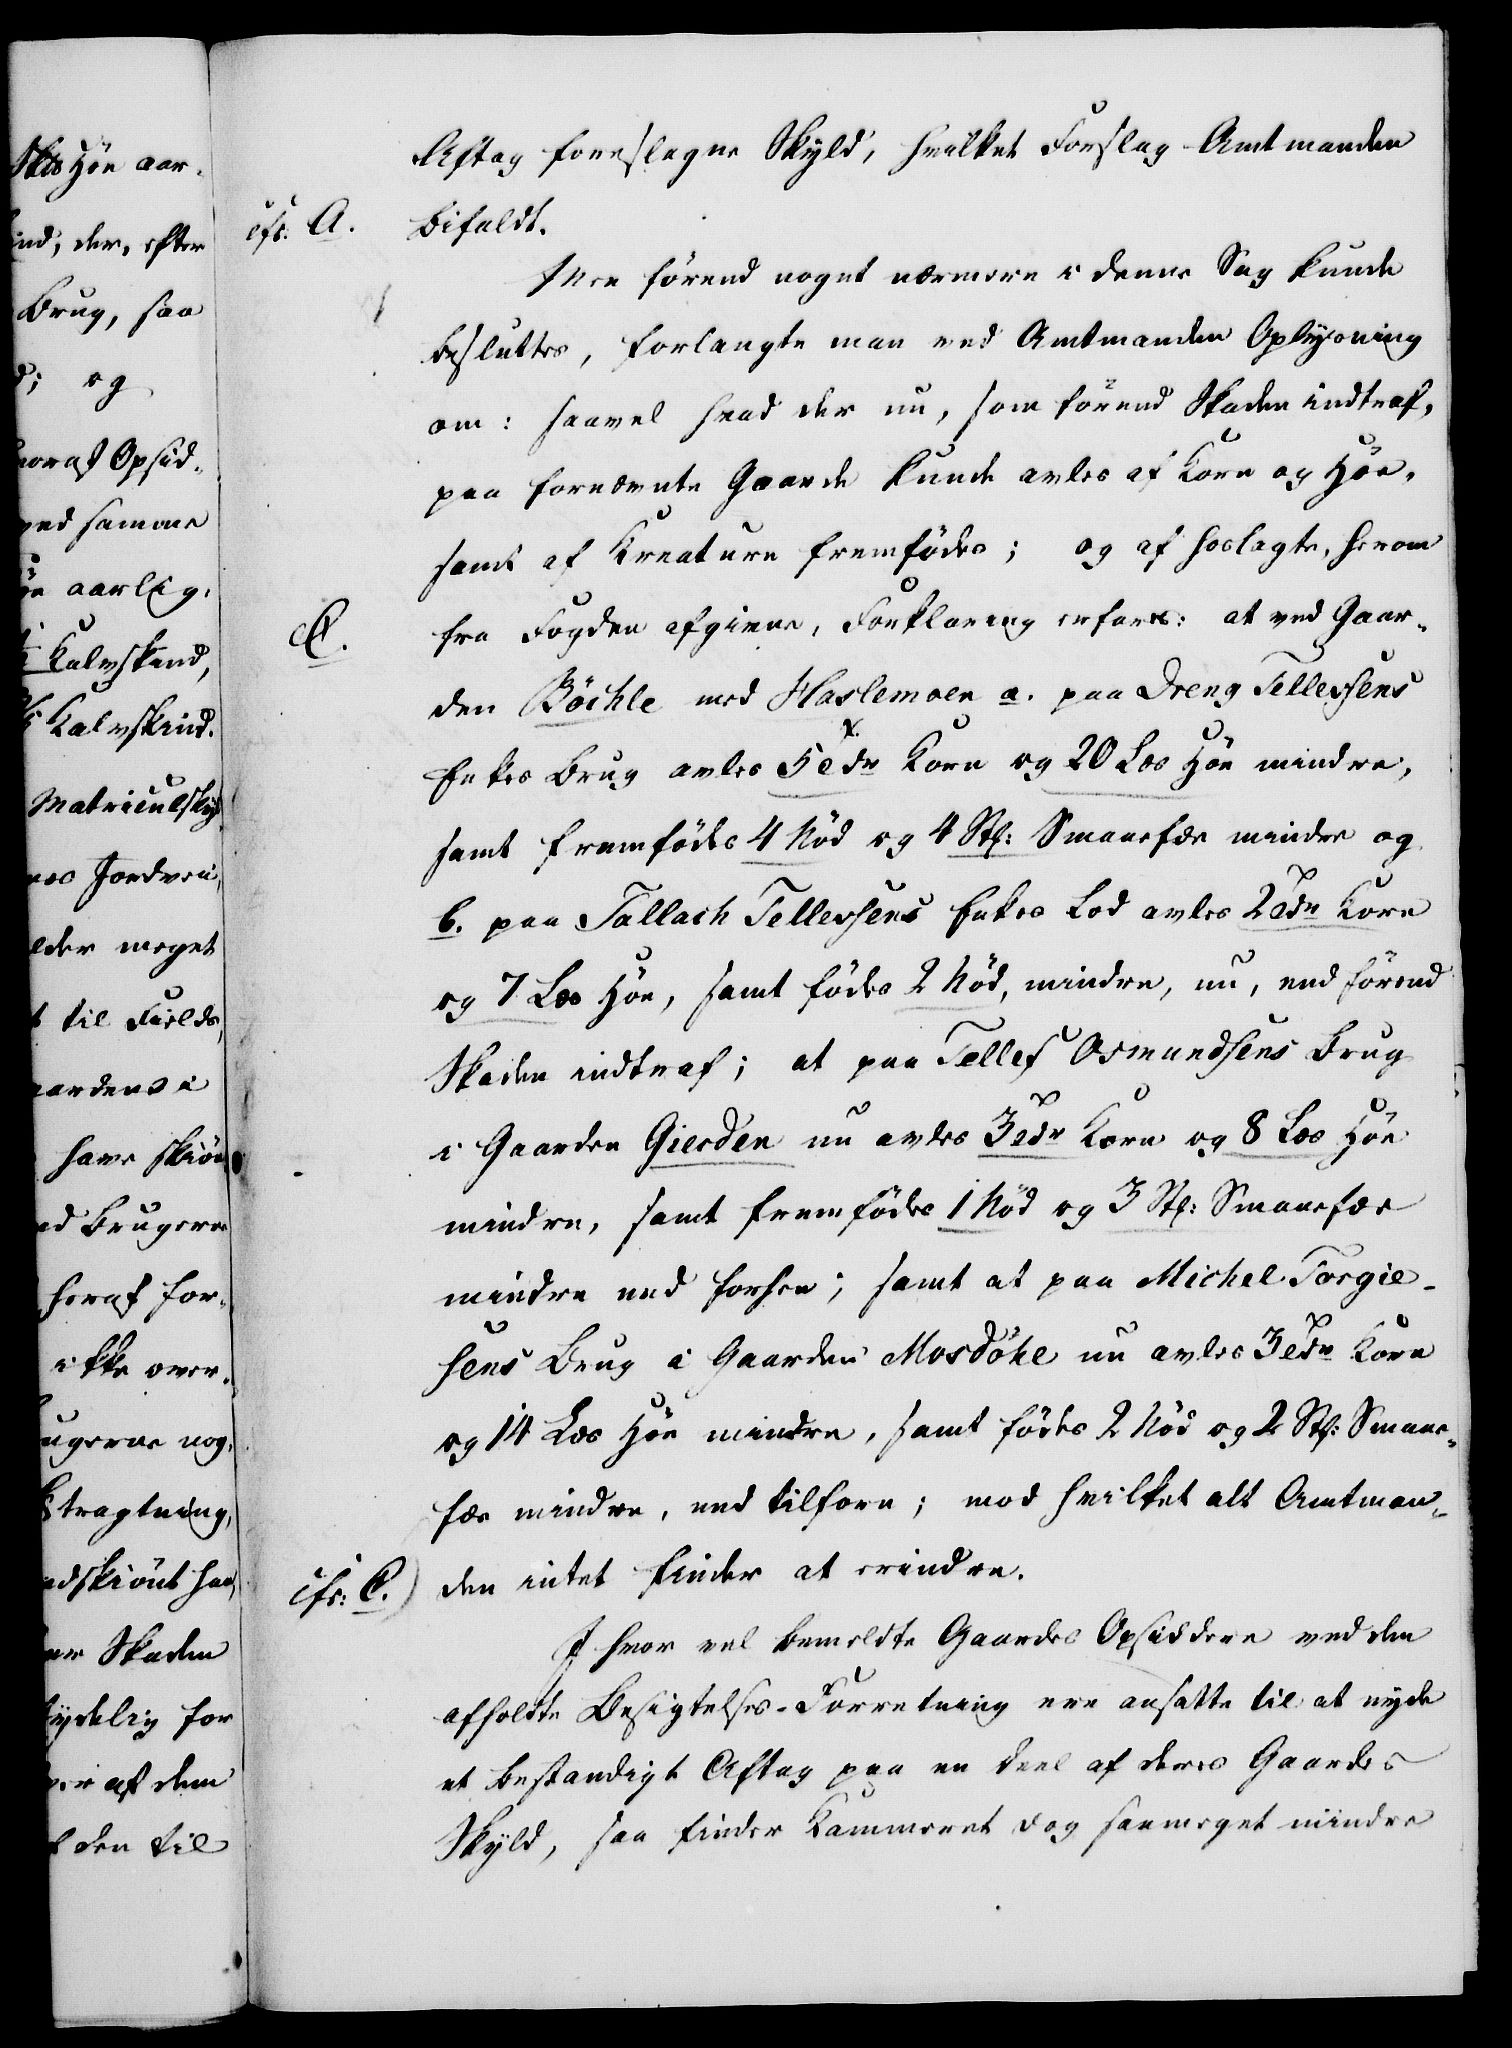 Skb Höe aar-
ind, der, efter
Brug, saa
d; og
hvoraf Opsid-
ved samme
Höe aarlig,
Kalvskind,
Kalvskind.
Matriculskyld
nes Jordvei,
eller meget
t til Fields,
aardens i
have skiön-
ad Brugerne
heraf for-
ikke over-
ugerne nog-
tragtning,
adskiönt han
er Skaden
tydelig for
er af dem
t den til
Aftag foreslagne Skyld, hvilket Forslag Amtmanden
cfr. A. bifaldt.
Men förend noget nærmere i denne Sag kunde
besluttes, forlangte man ved Amtmanden Oplysning
om: saavel hvad der nu, som förend Skaden indtraf,
paa fornævnte Gaarde kunde avles af Korn og Höe,
samt af Kreature fremfödes; og af hoslagte, herom
C. fra Fogden afgivne, Forklaring erfares: at ved Gaar-
den Böchle med Haslemoen a. paa Dreng Tellefsens
Enkes Brug avles 5 Tdr Korn og 20 Læs Höe mindre,
samt fremfödes 4 Nöd og 4 Stk: Smaaefæe mindre og
b. paa Tallach Tellefsens Enkes Lod avles 2 Tdr Korn
og 7 Læs Höe, samt födes 2 Nöd, mindre, nu, end förend
Skaden indtraf; at paa Tellef Osmundsens Brug
i Gaarden Gierden nu avles 3 Tdr Korn og 8 Læs Höe
mindre, samt fremfödes 1 Nöd og 3 Stk: Smaaefæe
mindre end forhen; samt at paa Michel Torgie-
sens Brug i Gaarden Mosdöhl nu avles 3 Tdr Korn
og 14 Læs Höe mindre, samt födes 2 Nöd og 2 Stk: Smaae-
fæe mindre, end tilforn; mod hvilket alt Amtman-
cfr: C.) den intet finder at erindre.
I hvor vel bemeldte Gaardes Opsiddere ved den
afholdte Besigtelses-Forretning ere ansatte til at nyde
et bestandigt Aftag paa en deel af deres Gaardes
Skyld, saa finder Kammeret dog saameget mindre